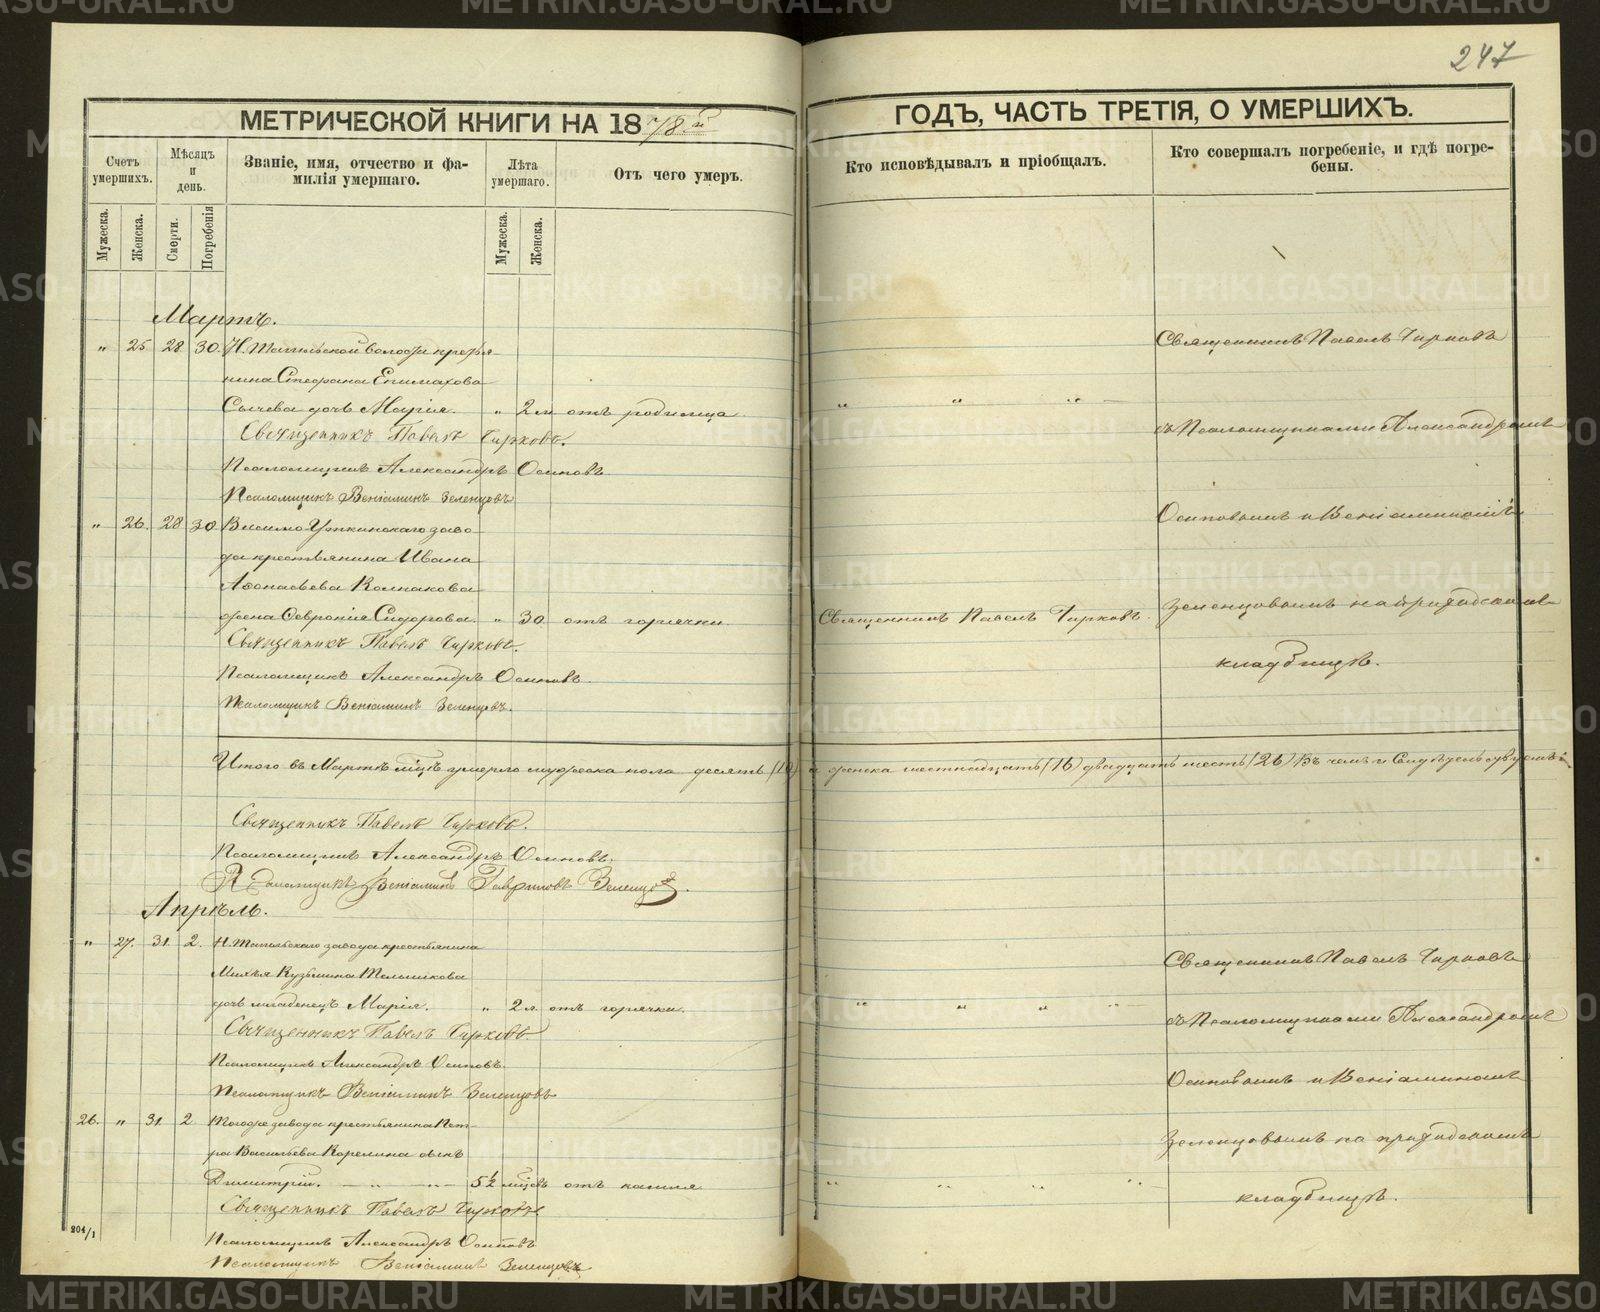 247
МЕТРИЧЕСКОЙ КНИГИ НА 1878й
ГОДЪ, ЧАСТЬ ТРЕТІЯ, О УМЕРШИХЪ.
Счетъ умершихъ.
Мѣсяцъ и день.
Званіе, имя, отчество и фа-
милія умершаго.
Лѣта умершаго.
Отъ чего умеръ.
Кто исповѣдывалъ и пріобщалъ.
Кто совершалъ погребеніе, и гдѣ погре-
бены.
Мужеска.
Женска.
Смерти.
Погребенія
Мужеска.
Женска.
Мартъ.
" 25 28 30. Н. Тагильской волости крестья-
нина Стефана Епимахова
Сычева дочь Марія. " 2 м. отъ родимца
Священникъ Павелъ Чирковъ.
Псаломщикъ Александръ Осиповъ
Псаломщикъ Веніаминъ Зеленцовъ
" 26. 28 30 Висимо-Уткинскаго заво-
да крестьянина Ивана
Аѳонасьева Колпакова
жена Севронія Сидорова. " 30. отъ горячки. Священникъ Павелъ Чирковъ.
Священникъ Павелъ Чирковъ.
Псаломщикъ Александръ Осиповъ.
Псаломщикъ Веніаминъ Зеленцовъ.
Священникъ Павелъ Чирковъ
съ Псаломщиками Александромъ
Осиповымъ и Веніаминомъ
Зеленцовымъ на приходскомъ
кладбищѣ.
Итого въ Мартѣ мцѣ умерло мужеска пола десять (10) и женска шестнадцать (16) двадцать шесть (26) Въ чемъ и Свидѣтельствуемъ:
Священникъ Павелъ Чирковъ.
Псаломщикъ Александръ Осиповъ.
Псаломщикъ Веніаминъ Гавриловъ Зеленцовъ.
Апрѣль.
" 27. 31. 2. Н. Тагильскаго завода крестьянина
Михѣя Кузьмина Мельникова
дочь младенецъ Марія. " 2 л. отъ горячки.
Священникъ Павелъ Чирковъ.
Псаломщикъ Александръ Осиповъ.
Псаломщикъ Веніаминъ Зеленцовъ
26. " 31. 2 Тогоже завода крестьянина Пет-
ра Васильева Корелина сынъ
Димитрій. 5½ мцевъ отъ кашля
Священникъ Павелъ Чирковъ
Псаломщикъ Александръ Осиповъ
Псаломщикъ Веніаминъ Зеленцовъ
Священникъ Павелъ Чирковъ
съ Псаломщиками Александромъ
Осиповымъ и Веніаминомъ
Зеленцовымъ на приходскомъ
кладбищѣ.
204/1
METRIKI.GASO-URAL.RU